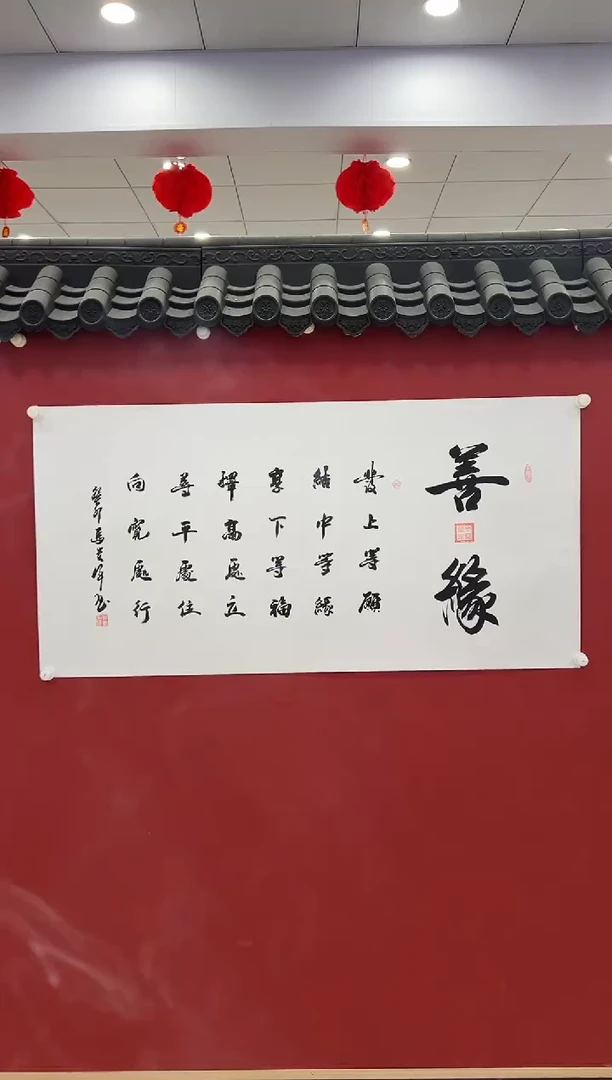 善緣
發上等願
結中等緣
享下等福
擇高處立
尋平處住
向寬處行
癸卯馬書